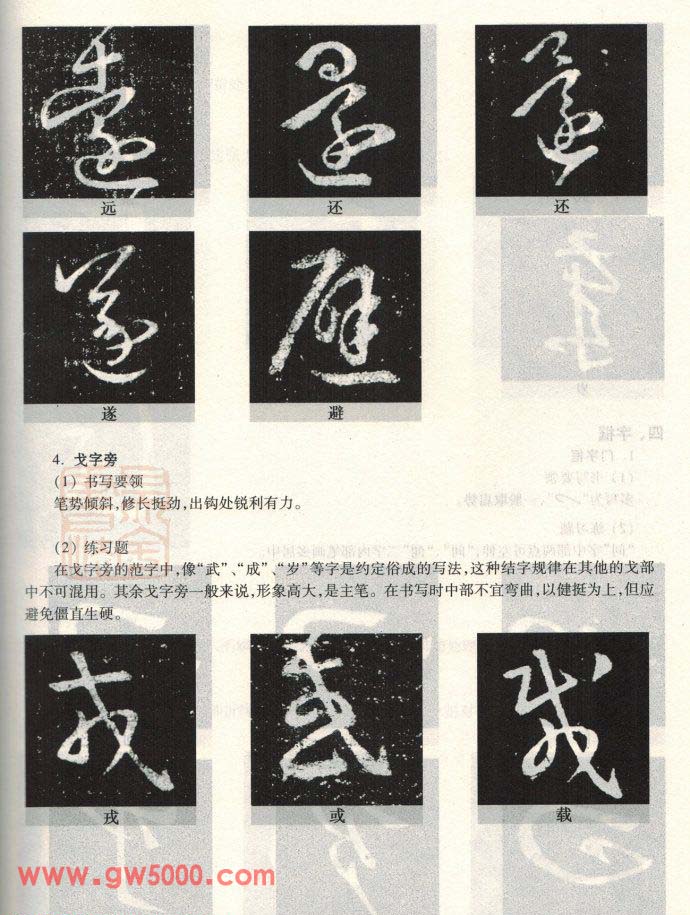 远 还 还
遂 避
4. 戈字旁
(1) 书写要领
笔势倾斜,修长挺劲,出钩处锐利有力。
(2) 练习题
在戈字旁的范字中,像“武”、“成”、“岁”等字是约定俗成的写法,这种结字规律在其他的戈部
中不可混用。其余戈字旁一般来说,形象高大,是主笔。在书写时中部不宜弯曲,以健挺为上,但应
避免僵直生硬。
戎 或 载
www.gw5000.com